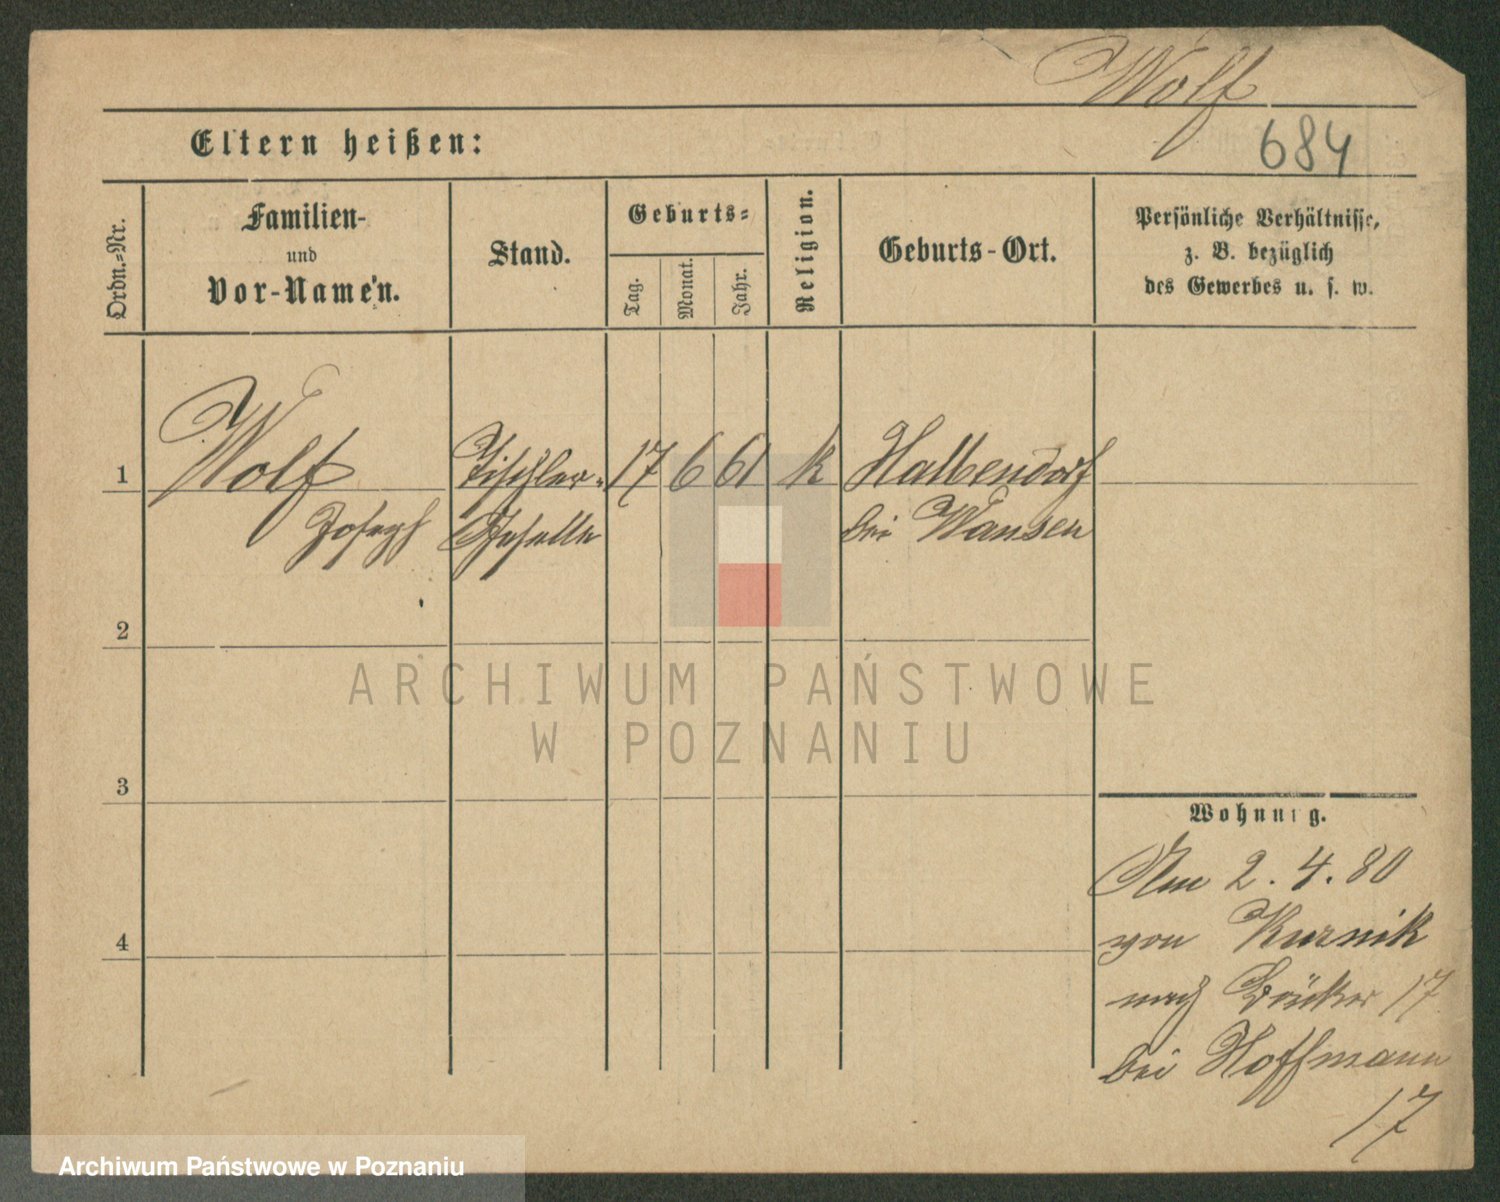 Wolf
684
Eltern heißen:
Ordn.-Nr.
Familien-
und
Vor-Namen.
Stand.
Geburts-
Tag.
Monat.
Jahr.
Religion.
Geburts-Ort.
Persönliche Verhältnisse,
z. B. bezüglich
des Gewerbes u. s. w.
1
Wolf
Joseph
Tischler-
Geselle
17
6
61
k
Halbendorf
bei Wansen
2
3
4
Wohnung.
Am 2. 4. 80
von Kurnik
nach 17
bei Hoffmann
17
ARCHIWUM PAŃSTWOWE
W POZNANIU
Archiwum Państwowe w Poznaniu